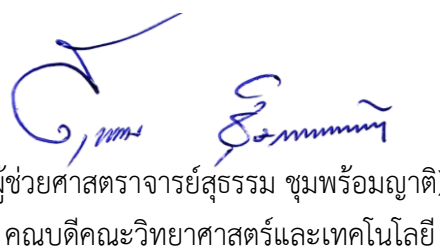 ผู้ช่วยศาสตราจารย์สุธรรม ชุมพร้อมญาติ)
คณบดีคณะวิทยาศาสตร์และเทคโนโลยี